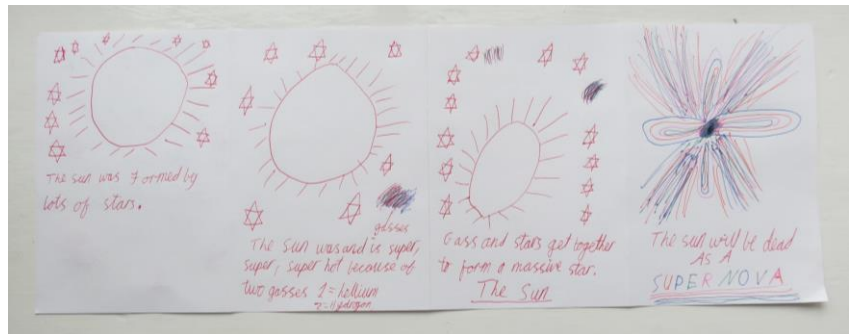 The sun was formed by
lots of stars.
gasses
The sun was and is super,
super, super hot because of
two gasses 1=hellium
2=Hydrogen
Gass and stars get together
to form a massive star.
The Sun
The sun will be dead
AS A
SUPERNOVA